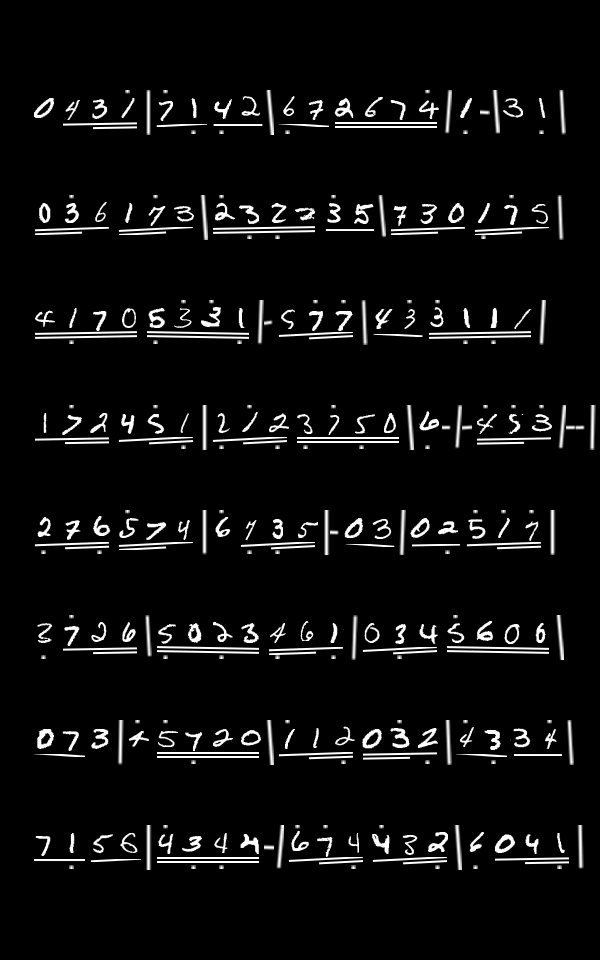 0 4 3 1 | 7 1 4 2 | 6 7 2 6 7 4 | 1 - | 3 1 |
0 3 6 1 7 3 | 2 3 2 2 3 5 | 7 3 0 1 7 5 |
4 1 7 0 5 3 3 1 | - 5 7 7 | 4 3 3 1 1 1 |
1 7 2 4 5 1 | 2 1 2 3 7 5 0 | 6 - | - 4 5 3 | - - |
2 7 6 5 7 4 | 6 7 3 5 | - 0 3 | 0 2 5 1 7 |
3 7 2 6 | 5 0 2 3 4 6 1 | 0 3 4 5 6 0 6 |
0 7 3 | 4 5 7 2 0 | 1 1 2 0 3 2 | 4 3 3 4 |
7 1 5 6 | 4 3 4 4 - | 6 7 4 4 3 2 | 6 0 4 1 |